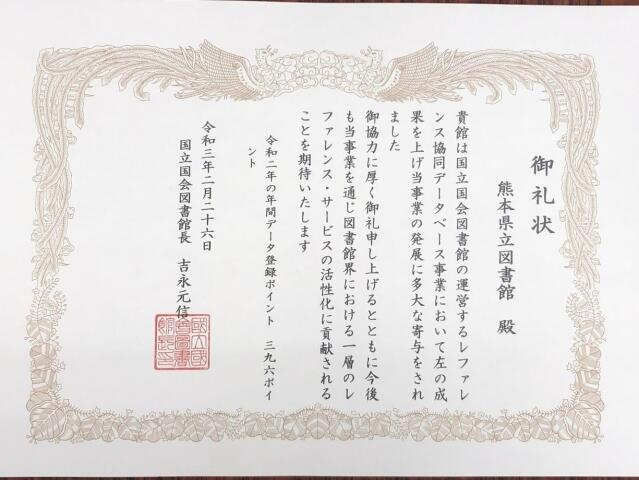 御礼状
熊本県立図書館 殿
貴館は国立国会図書館の運営するレファレ
ンス協同データベース事業において左の成
果を上げ当事業の発展に多大な寄与をされ
ました
御協力に厚く御礼申し上げるとともに今後
も当事業を通じ図書館界における一層のレ
ファレンス・サービスの活性化に貢献される
ことを期待いたします
令和二年の年間データ登録ポイント 三九六ポイ
ント
令和三年二月二十六日
国立国会図書館長 吉永元信